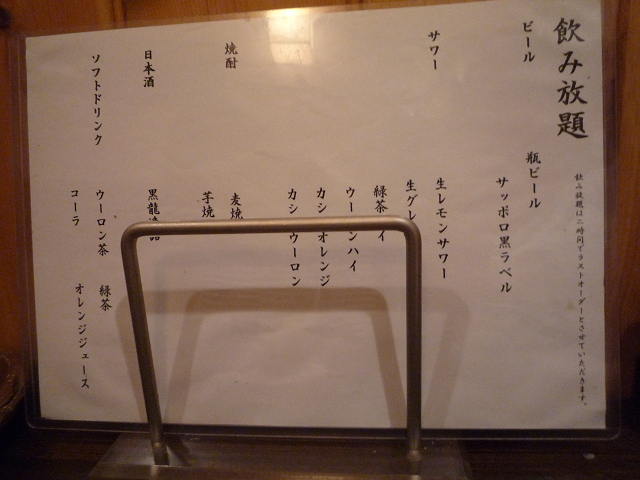 飲み放題
飲み放題は二時間でラストオーダーとさせていただきます。
ビール
瓶ビール
サッポロ黒ラベル
サワー
生レモンサワー
生グレ
緑茶 イ
ウー ンハイ
カシ オレンジ
カシ ウーロン
焼酎
麦焼
芋焼
日本酒
黒龍
ソフトドリンク
ウーロン茶
緑茶
コーラ
オレンジジュース